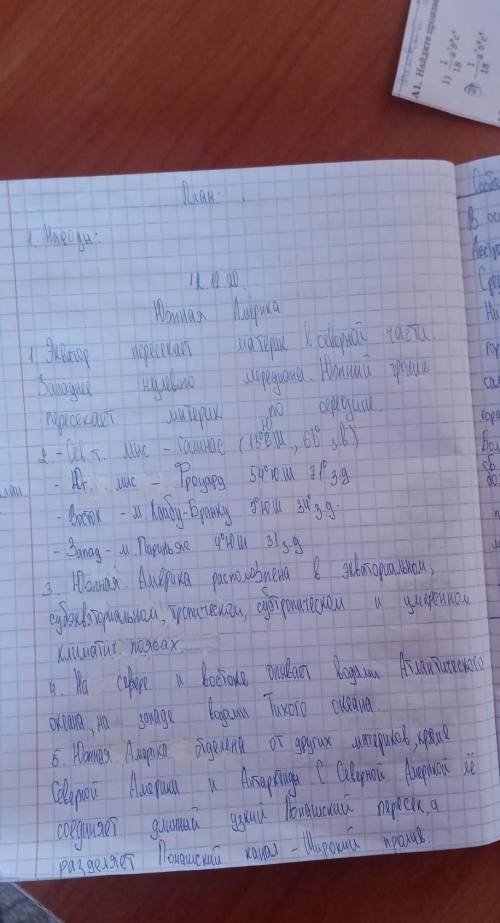 А1. Найдите произве
1)
18
18
План:
1. Народы:
Южная Америка
1. Экватор пересекает материк в северной части.
Западнее нулевого меридиана. Южный тропик
пересекает материк по середине.
2. - Сев. т. мыс - Гальинас
- Юг. мыс - Фроуард 54°ЮШ 71° з.д
- Восток - м Кабу-Бранку 7°ЮШ 34° з.д.
- Запад - м. Париньяс 4°ЮШ 81 з.д
3. Южная Америка расположена в экваториальном,
субэкваториальном, тропическом, субтропическом и умеренном
климатич. поясах.
4. На севере и востоке омывает водами Атлантического
океана, на западе водами Тихого океана.
5. Южная Америка отделена от других материков, кроме
Северной Америки и Антарктиды. С Северной Америкой её
соединяет длинный узкий Панамский пересек, а
разделяет Панамский канал - Широкий пролив.
план
Бол